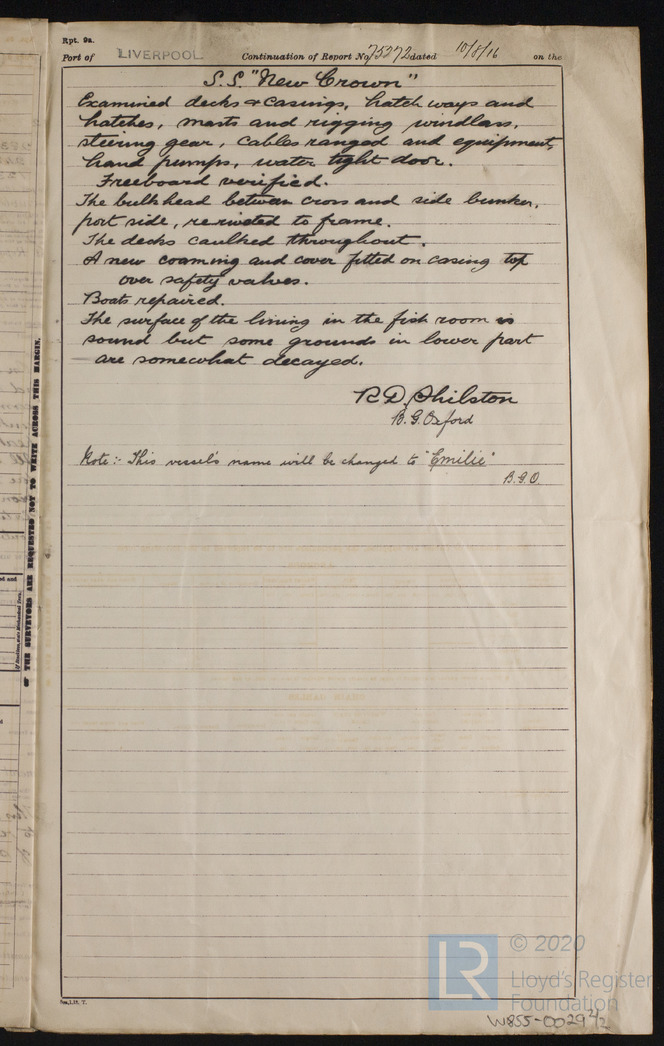 Rpt. 9a.
Port of LIVERPOOL Continuation of Report No 75272 dated 10/8/16 on the
S.S. "New Crown"
Examined decks & casings, hatch ways and
hatches, masts and rigging windlass,
steering gear, cables ranged and equipment,
hand pumps, water tight door.
Freeboard verified.
The bulkhead between cross and side bunker,
port side, reriveted to frame.
The decks caulked throughout.
A new coaming and cover fitted on casing top
over safety valves.
Boats repaired.
The surface of the lining in the fish room is
sound but some grounds in lower part
are somewhat decayed.
R D, Shilston
B. G. Oxford
Note:- This vessel's name will be changed to "Emilie"
B.G.O.
OF THE SURVEYORS ARE REQUESTED NOT TO WRITE ACROSS THIS MARGIN.
© 2020
LR
Lloyd's Register
Foundation
W855-0029 2/2